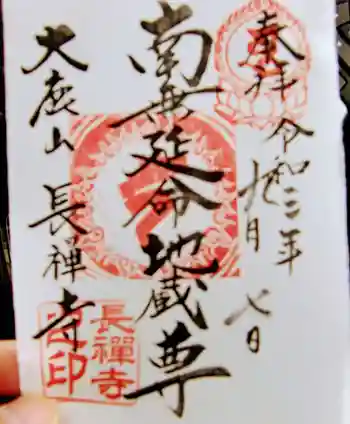 奉拝
令和三年
九月七日
南無延命地蔵尊
大鹿山
長禅寺
長禪寺